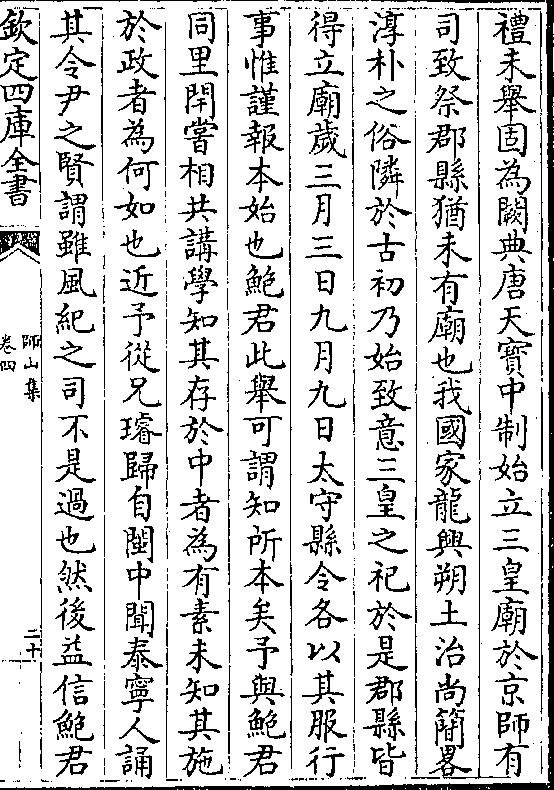 禮未舉固為闕典唐天寳中制始立三皇廟於京師有
司致祭郡縣猶未有廟也我國家龍興朔土治尚簡畧
淳朴之俗隣於古初乃始致意三皇之祀於是郡縣皆
得立廟歲三月三日九月九日太守縣令各以其服行
事惟謹報本始也鮑君此舉可謂知所本矣予與鮑君
同里閈嘗相共講學知其存於中者為有素未知其施
於政者為何如也近予從兄璿歸自閩中聞泰寧人誦
其令尹之賢謂雖風紀之司不是過也然後益信鮑君
欽定四庫全書
師山集
卷四
二十